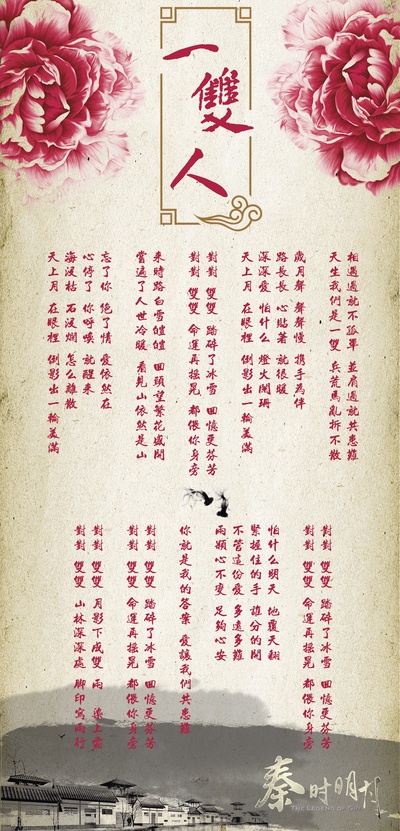 一雙人
相遇過就不孤單 並肩過就共患難
天生我們是一雙 兵荒馬亂拆不散
歲月聲 聲聲慢 攜手為伴
路長長 心貼著 就很暖
深深愛 怕什么 燈火闌珊
天上月 在眼裡 倒影出一輪美滿
對對 雙雙 踏碎了冰雪 回憶更芬芳
對對 雙雙 命運再搖晃 都偎你身旁
來時路白雪皚皚 回頭望繁花盛開
嘗遍了人世冷暖 看見山依然是山
忘了你 絕了情 愛依然在
心停了 你呼喚 就醒來
海沒枯 石沒爛 怎么離散
天上月 在眼裡 倒影出一輪美滿
對對 雙雙 踏碎了冰雪 回憶更芬芳
對對 雙雙 命運再搖晃 都偎你身旁
怕什么明天 地覆天翻
緊握住的手 誰分的開
不管這份愛 多遠多難
兩顆心不變 足夠心安
你就是我的答案 愛讓我們共患難
對對 雙雙 踏碎了冰雪 回憶更芬芳
對對 雙雙 命運再搖晃 都偎你身旁
對對 雙雙 月影下成雙 兩 染上霜
對對 雙雙 山林深深處 腳印寫兩行
秦时明月
THE LEGEND OF QIN